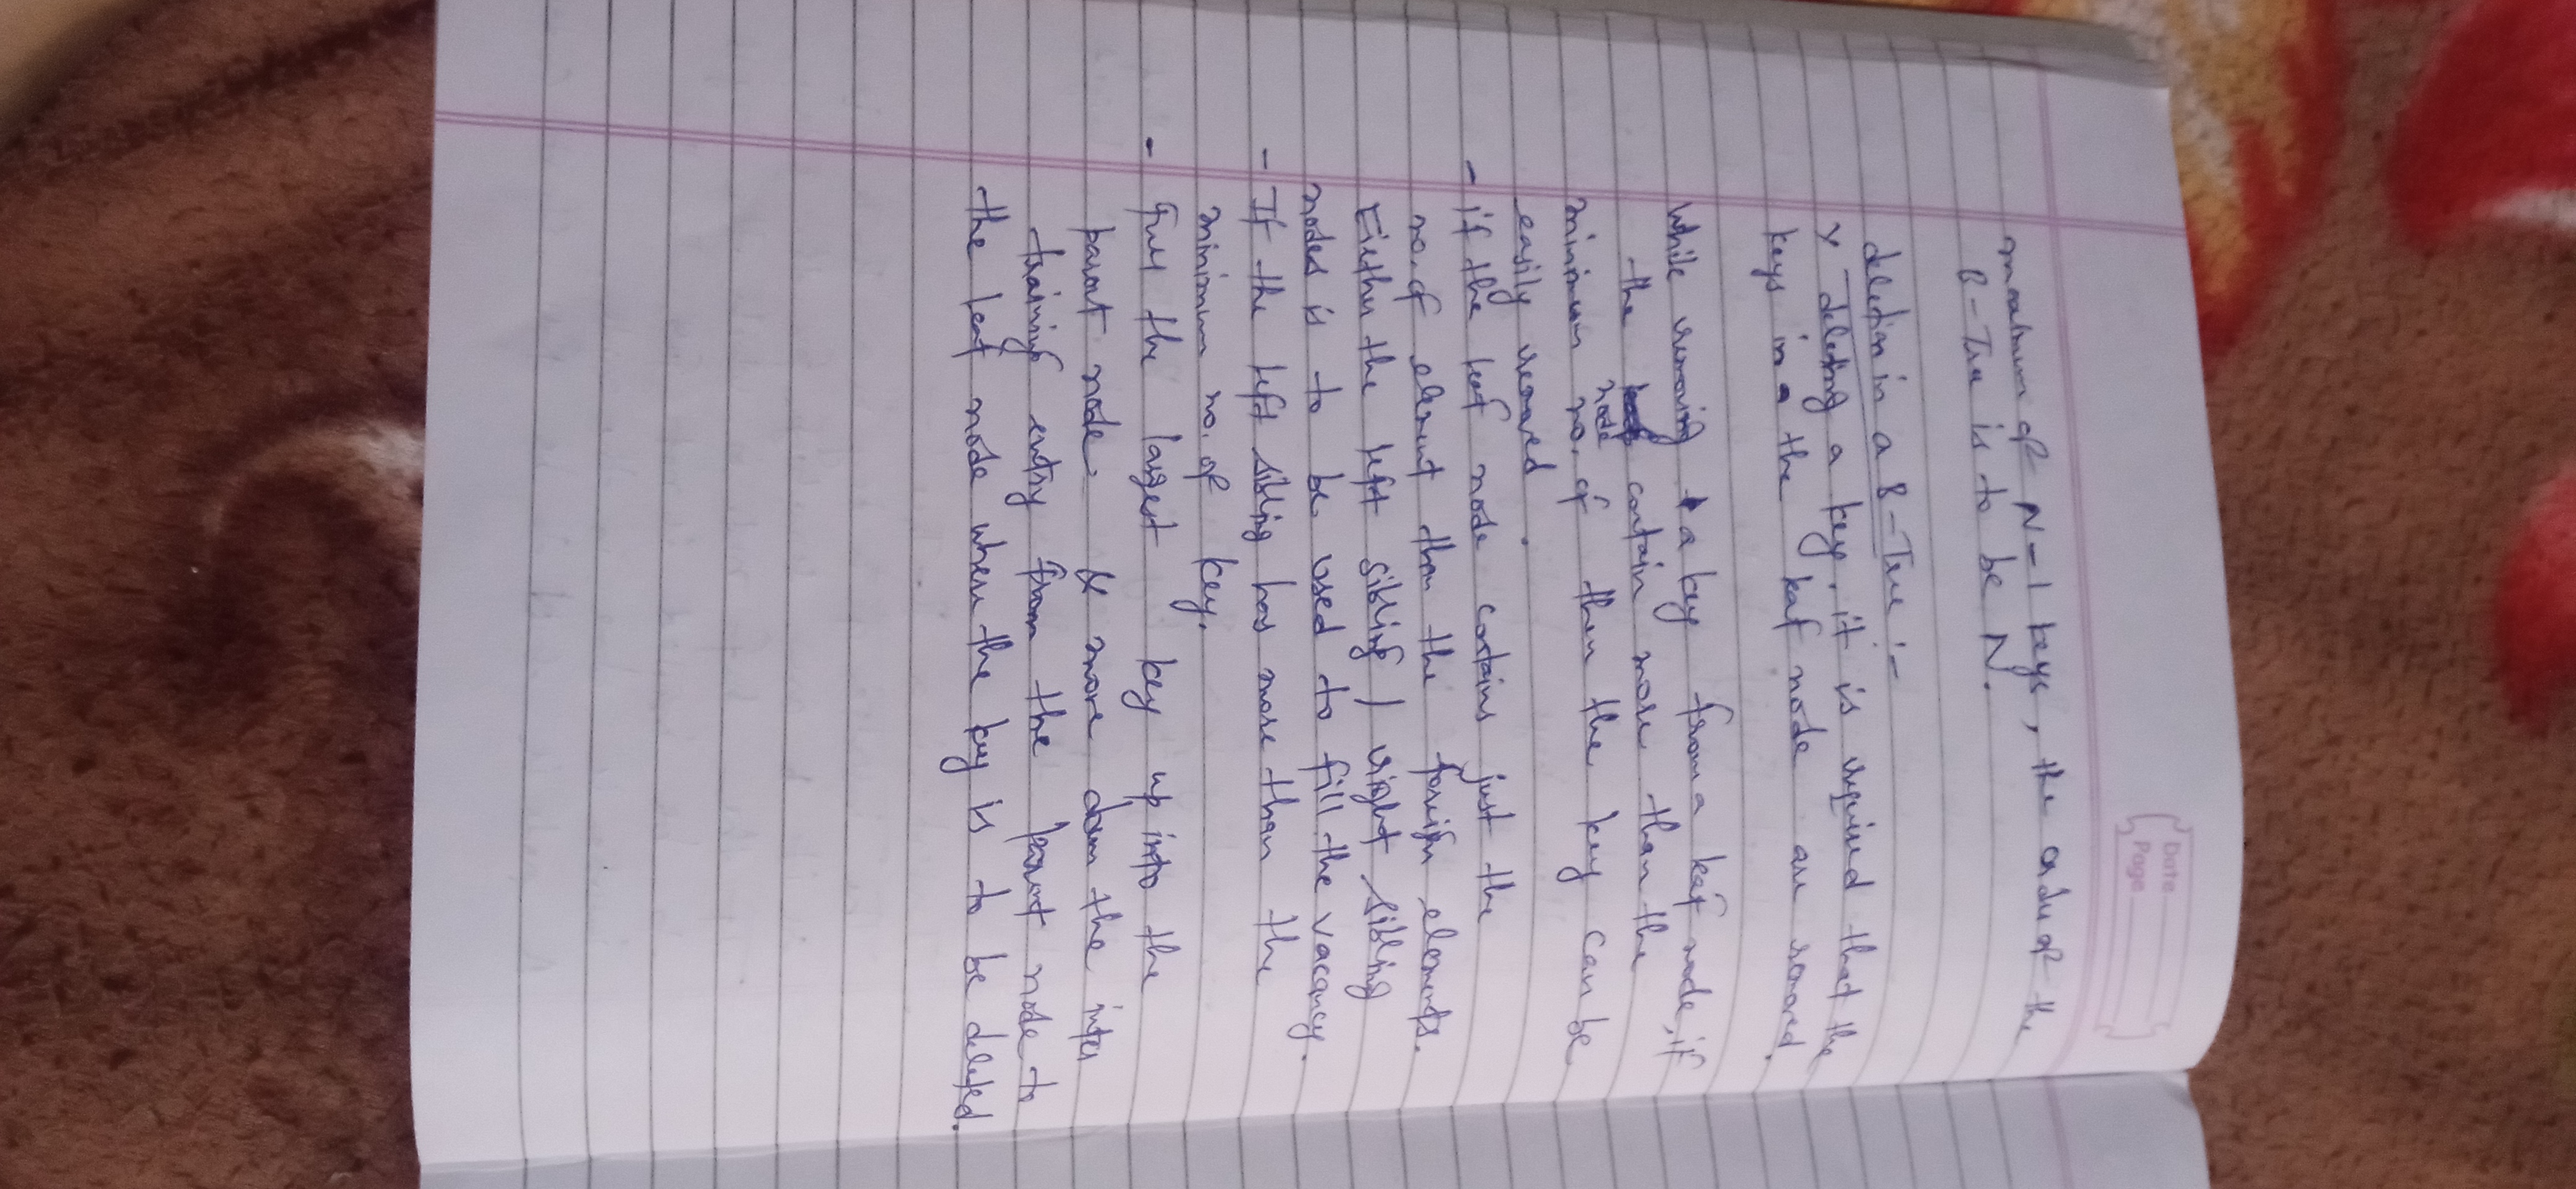 Date
Page
maximum of N-1 keys, the order of the
B-Tree is to be N.
deletion in a B-Tree :-
deleting a key, it is required that the
keys in a the leaf node are removed.
While removing a key from a leaf node, if
the node contain more than the
minimum no. of then the key can be
easily removed.
- if the leaf node contains just the
no. of element than the foreign elements.
Eiether the left sibling / right sibling
nodes is to be used to fill the vacancy.
- If the left sibling has more than the
minimum no. of key.
- the largest key up into the
parent node & move down the inter
training entry from the parent node to
the leaf node where the key is to be deleted.